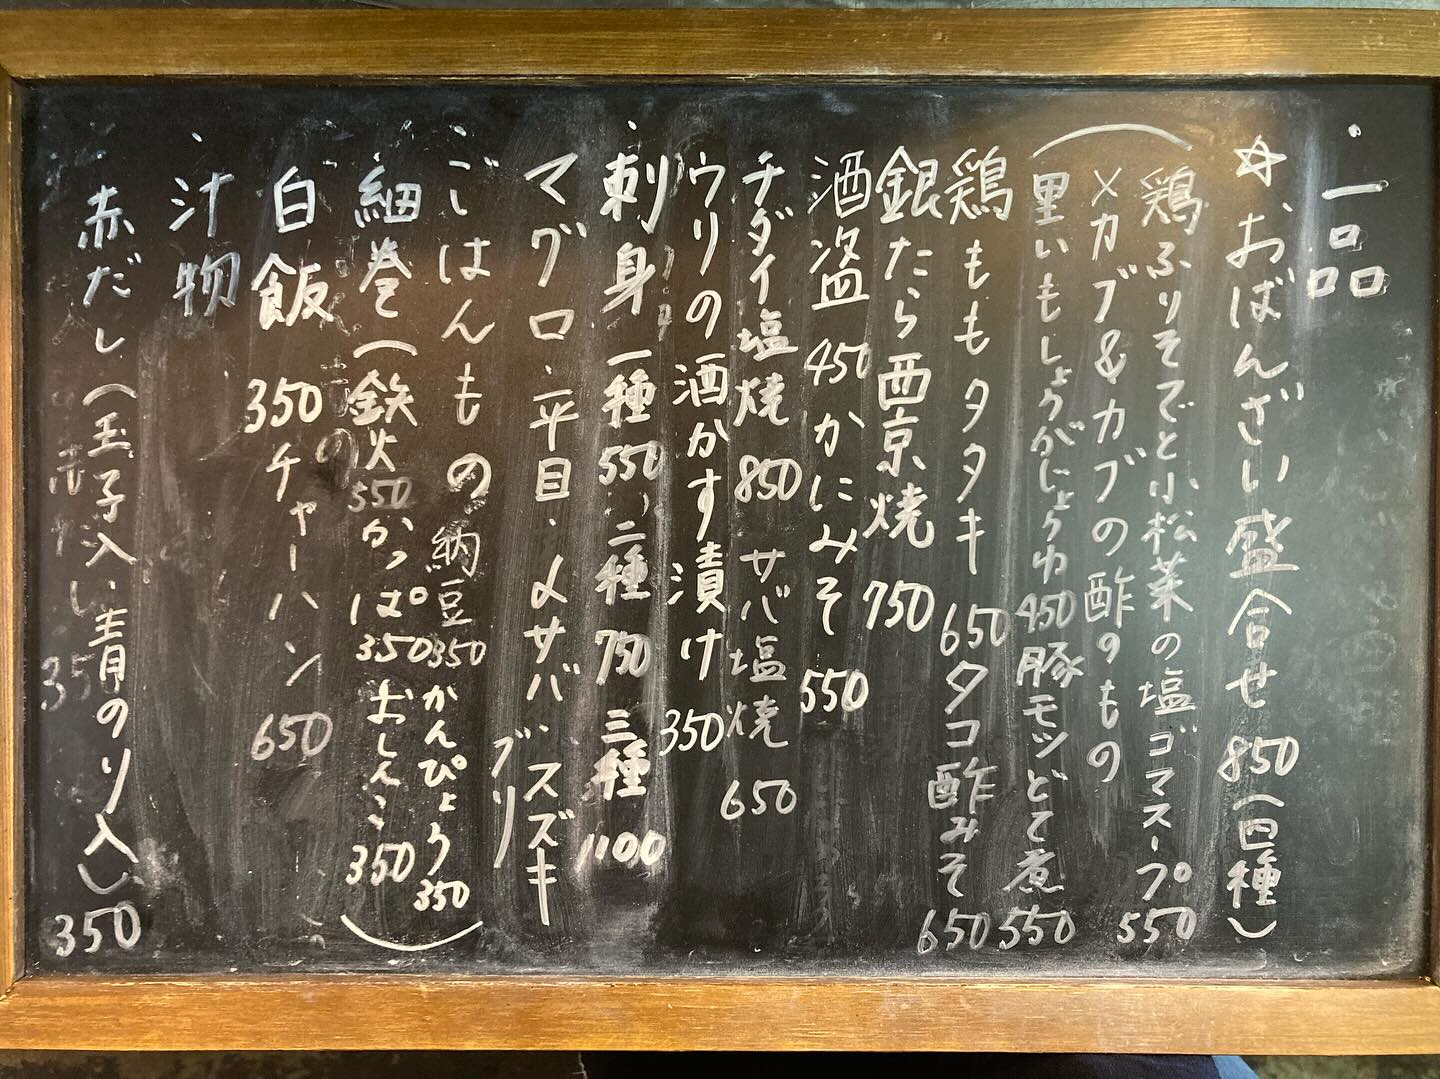 ・一品
☆おばんざい盛合せ 850(四種)
鶏ふりそでと小松菜の塩ゴマスープ 550
メカブ&カブの酢のもの
里いもしょうがじょうゆ 450 豚モツどて煮 550
鶏ももタタキ 650 タコ酢みそ 650
銀たら西京焼 750
酒盗 450 かにみそ 550
チダイ塩焼 850 サバ塩焼 650
ウリの酒かす漬け 350
刺身 一種 550 二種 750 三種 1100
マグロ・平目・〆サバ・スズキ
ブリ
・ごはんもの 納豆 350 かんぴょう 350
細巻(鉄火 550 かっぱ 350 おしんこ 350)
白飯 350 チャーハン 650
・汁物
赤だし(玉子入り・青のり入り) 350